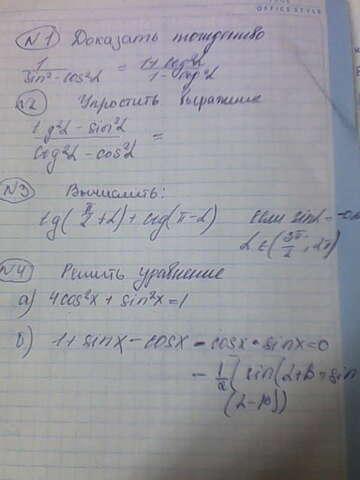 OFFICE STYLE
№1 Доказать тождество
1/(sin²-cos²α) = (1+ctg²α)/(1-ctg²α)
№2 Упростить выражение
(tg²α-sin²α)/(ctg²α-cos²α) =
№3 Вычислить:
tg(π/2+α)+ctg(π-α) если sinα=-0
α∈(3π/2, 2π)
№4 Решить уравнение
а) 4cos²x+sin²x=1
б) 1+sinx-cosx-cosx·sinx=0
-1/2[sin(α+β=sin
(α-β)]